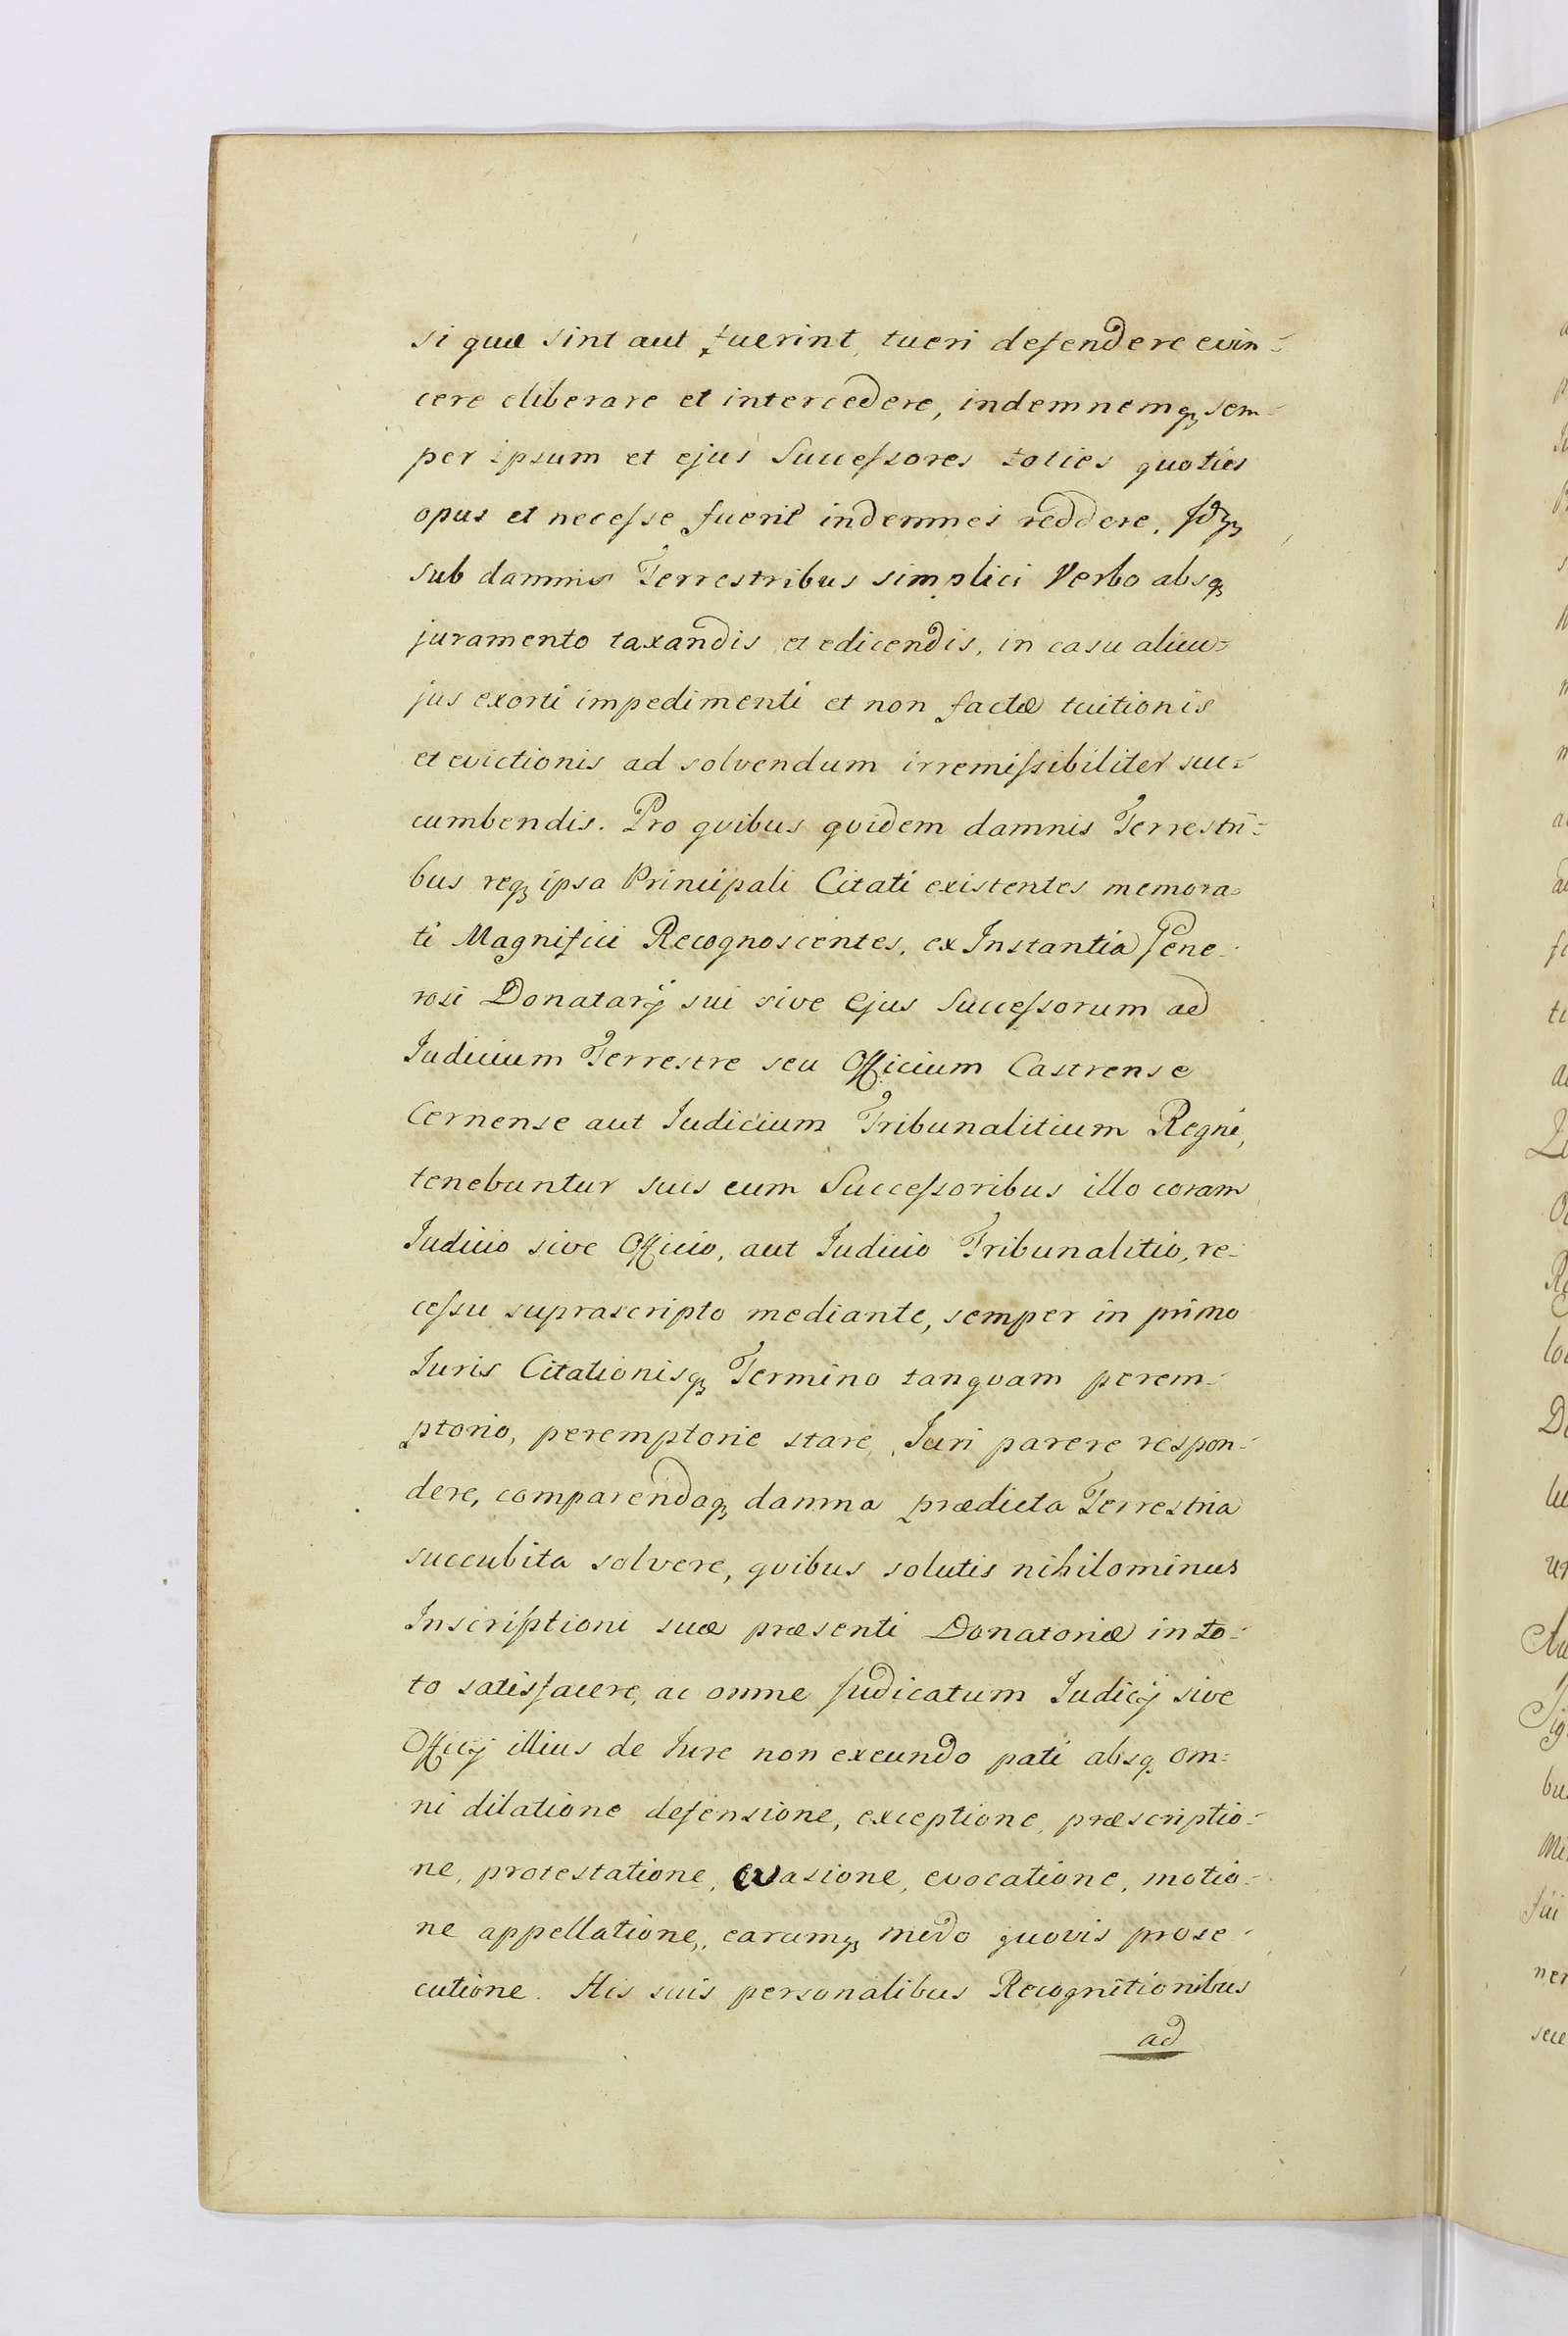 si quæ sint aut fuerint, tueri defendere evin=
cere eliberare et intercedere, indemnemq; sem=
per ipsum et ejus Succeſsores toties quoties
opus et neceſse fuerit indemnes reddere. Idq;
sub damnis Terrestribus simplici Verbo absq;
juramento taxandis et edicendis, in casu alicu=
jus exorti impedimenti et non factæ tuitionis
et evictionis ad solvendum irremiſsibiliter suc=
cumbendis. Pro qvibus qvidem damnis Terrestri=
bus req; ipsa Principali Citati existentes memora=
ti Magnifici Recognoscentes, ex Instantia Gene=
rosi Donatarÿ sui sive Ejus Succeſsorum ad
Iudicium Terrestre seu Officium Castrense
Cernense aut Iudicium Tribunalitium Regni,
tenebuntur suis cum Succeſsoribus illo coram
Iudicio sive Officio, aut Iudicio Tribunalitio, re=
ceſsu suprascripto mediante, semper in primo
Iuris Citationisq; Termino tanqvam perem=
ptorio, peremptorie stare, Iuri parere respon=
dere, comparendoq; damna prædicta Terrestria
succubita solvere, qvibus solutis nihilominus
Inscriptioni suæ præsenti Donatoriæ in to=
to satisfacere, ac omne Judicatum Iudicÿ sive
Officÿ illius de Iure non exeundo pati absq; om=
ni dilatione defensione, exceptione, præscriptio=
ne, protestatione, evasione, evocatione, motio=
ne appellatione, earumq; modo quovis prose=
cutione. His suis personalibus Recognitionibus
ad